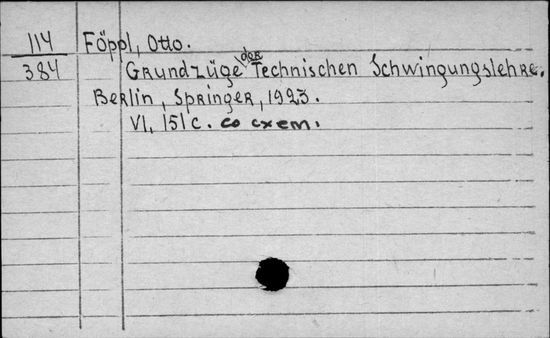 114
384
Föppl, Otto.
Grundzüge der Technischen Schwingungslehre.
Berlin, Springer, 1923.
VI, 151 с. со схем.